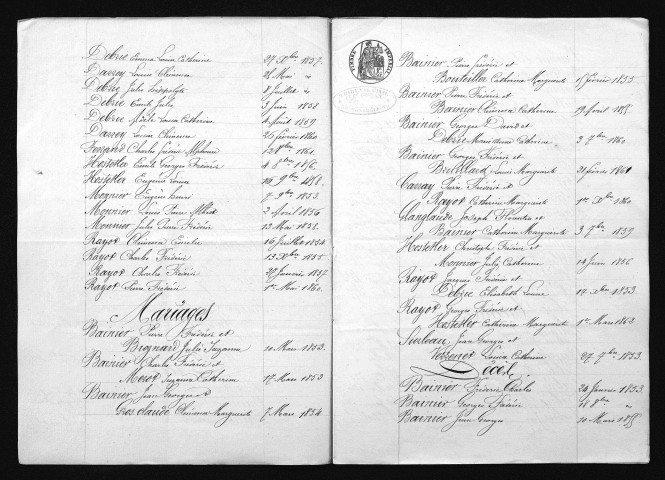 Debrie Emma Louise Catherine 27 Xbre 1857.
Dassey Louise Clémence 25 Mai "
Debrie Jules Hippolyte 8 Juillet "
Debrie Emile Jules 3 Juin 1858
Debrie Adèle Louise Catherine 4 Août 1859
Dassey Louise Clémence 26 février 1860
Ferrand Charles Frédéric Alphonse 12 8bre 1860.
Hostetler Emile Georges Frédéric 4 8bre 1856.
Hostetler Eugénie Louise 9bre 1858.
Monnier Eugène Henri 7 9bre 1853.
Monnier Louis Pierre Albert 2 Avril 1856
Monnier Jules Pierre Frédéric 13 Mai 1858.
Rayot Clémence Emélie 16 Juillet 1854
Rayot Charles Frédéric 13 Xbre 1855
Rayot Charles Frédéric 29 Janvier 1857.
Rayot Pierre Frédéric 1er Mai 1860.
Mariages
Bainier Pierre Frédéric et
Brognard Julie Suzanne 10 Mars 1853.
Bainier Charles Frédéric et
Merot Suzanne Catherine 17 Mars 1853
Bainier Jean Georges et
Grosclaude Clémence Marguerite 7 Mars 1854
TIMBRE IMPERIAL
Bainier Pierre Frédéric et
Bouteiller Catherine Marguerite 15 février 1855
Bainier Pierre Frédéric et
Bainier Clémence Catherine 19 Avril 1855.
Bainier Georges David et
Debrie Catherine 3 7bre 1860.
Bainier Georges Frédéric et
Louise Marguerite 21 février 1861
Carray Pierre Frédéric et
Rayot Catherine Marguerite 1er Xbre 1860
Glanglaude Joseph et
Bainier Catherine Marguerite 3 9bre 1859
Hostetler Christophe Frédéric et
Monnier Julie Catherine 14 Juin 1856
Rayot Jacques Frédéric et
Debrie Elisabeth Louise 17 Xbre 1853.
Rayot Georges Frédéric et
Hostetler Catherine Marguerite 1er Mars 1862
Jean Georges et
Louise Catherine 27 7bre 1853.
Décès
Bainier Frédéric Charles 24 Janvier 1853.
Bainier Georges Frédéric 11 8bre "
Bainier Jean Georges 10 Mars 1855